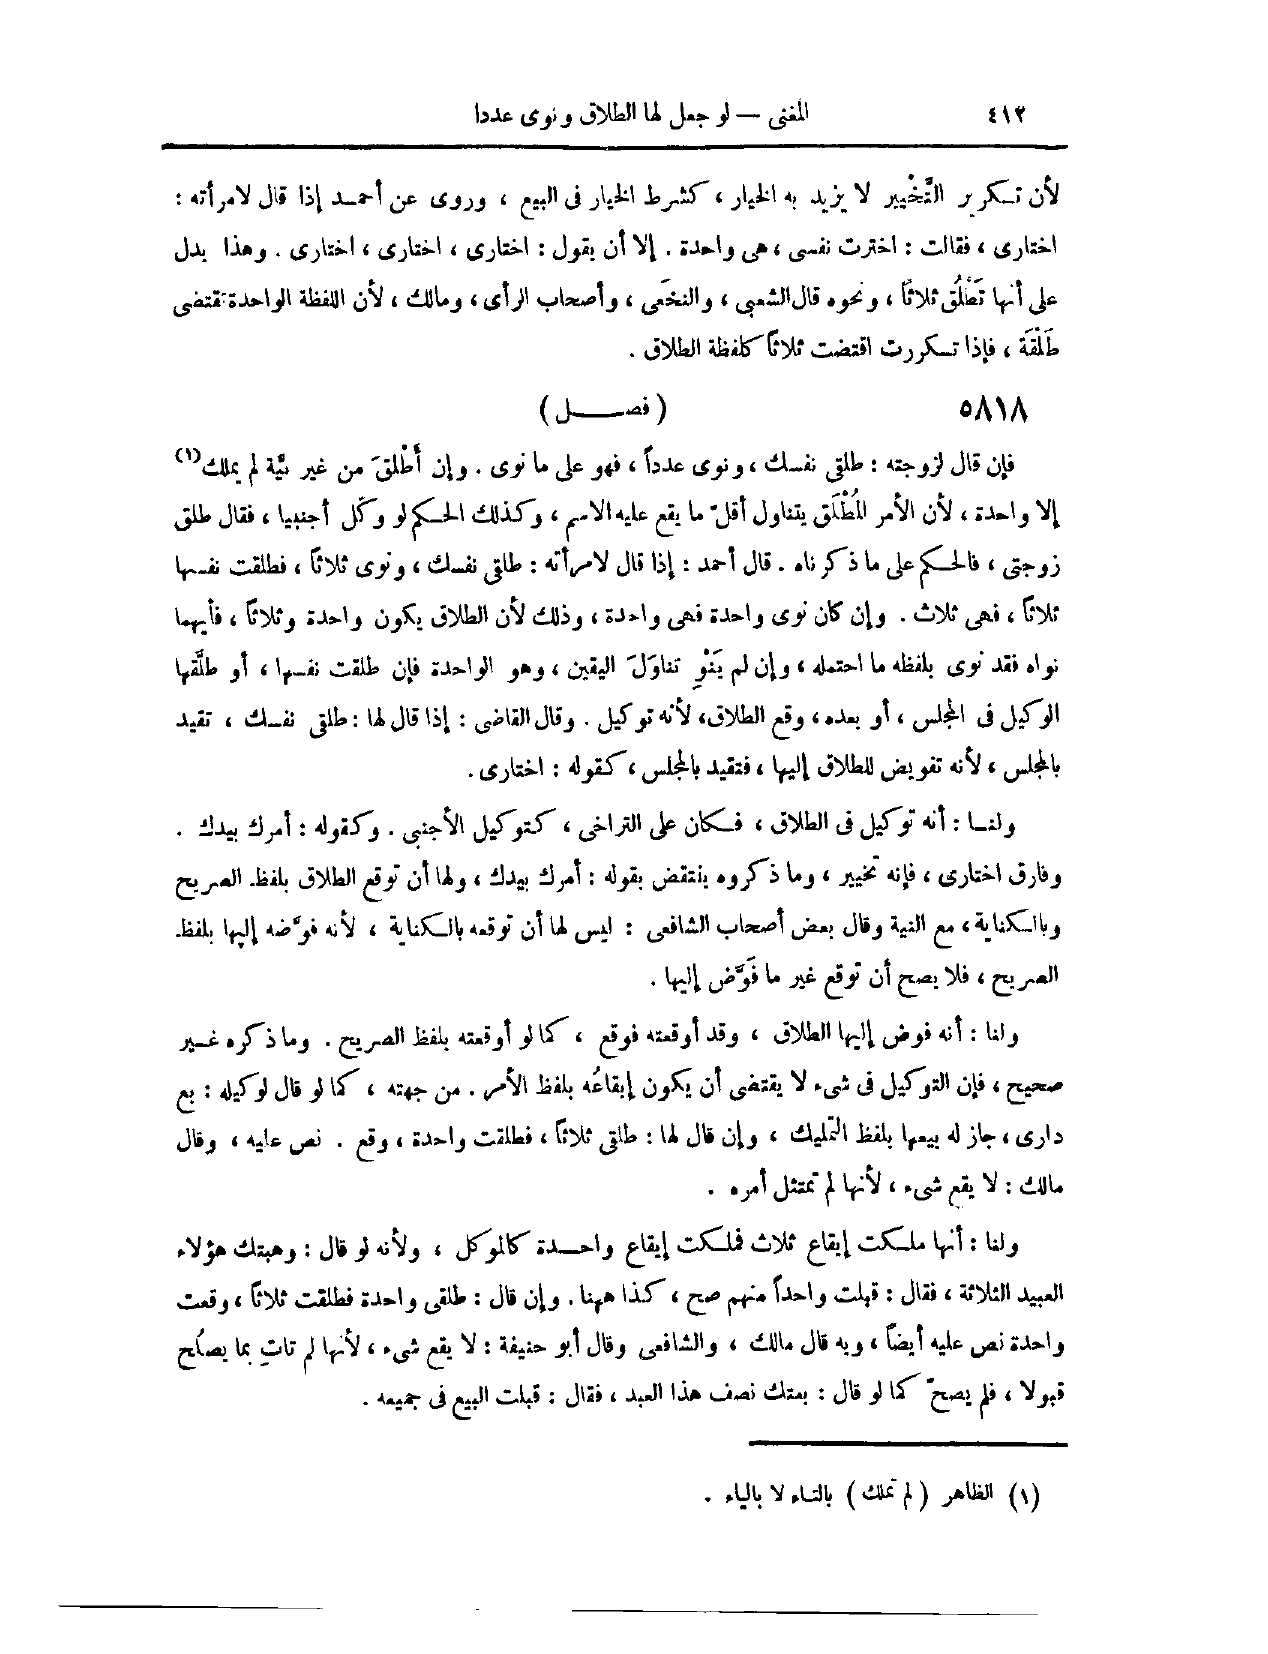 ٤١٢ المغنى — لو جعل لها الطلاق ونوى عددا
لأن تكرير التَّخْيير لا يزيد به الخيار ، كشرط الخيار فى البيع ، وروى عن أحمد إذا قال لامرأته :
اختارى ، فقالت : اخترت نفسى ، هى واحدة . إلا أن يقول : اختارى ، اختارى ، اختارى . وهذا يدل
على أنها تَطْلُق ثلاثاً ، ونحوه قال الشعبى ، والنخَعى ، وأصحاب الرأى ، ومالك ، لأن اللفظة الواحدة تقتضى
طَلْقَة ، فإذا تكررت اقتضت ثلاثاً كلفظة الطلاق .
٥٨١٨ ( فصـــل )
فإن قال لزوجته : طلقى نفسك ، ونوى عدداً ، فهو على ما نوى . وإن أَطْلقَ من غير نيَّة لم يملك(١)
إلا واحدة ، لأن الأمر المُطْلَق يتناول أقلّ ما يقع عليه الاسم ، وكذلك الحكم لو وكّل أجنبيا ، فقال طلق
زوجتى ، فالحكم على ما ذكرناه . قال أحمد : إذا قال لامرأته : طلقى نفسك ، ونوى ثلاثاً ، فطلقت نفسها
ثلاثاً ، فهى ثلاث . وإن كان نوى واحدة فهى واحدة ، وذلك لأن الطلاق يكون واحدة وثلاثاً ، فأيهما
نواه فقد نوى بلفظه ما احتمله ، وإن لم يَنْوِ تناوَلَ اليقين ، وهو الواحدة فإن طلقت نفسها ، أو طلَّقها
الوكيل فى المجلس ، أو بعده ، وقع الطلاق، لأنه توكيل . وقال القاضى : إذا قال لها : طلقى نفسك ، تقيد
بالمجلس ، لأنه تفويض للطلاق إليها ، فتقيد بالمجلس ، كقوله : اختارى .
ولنا : أنه توكيل فى الطلاق ، فكان على التراخى ، كتوكيل الأجنبى . وكقوله : أمرك بيدك .
وفارق اختارى ، فإنه تخيير ، وما ذكروه ينتقض بقوله : أمرك بيدك ، ولها أن توقع الطلاق بلفظ الصريح
وبالكناية ، مع النية وقال بعض أصحاب الشافعى : ليس لها أن توقعه بالكناية ، لأنه فوّضه إليها بلفظ
الصريح ، فلا يصح أن توقع غير ما فَوَّض إليها .
ولنا : أنه فوض إليها الطلاق ، وقد أوقعته فوقع ، كما لو أوقعته بلفظ الصريح . وما ذكره غير
صحيح ، فإن التوكيل فى شىء لا يقتضى أن يكون إيقاعُه بلفظ الأمر . من جهته ، كما لو قال لوكيله : بع
دارى ، جاز له بيعها بلفظ التمليك ، وإن قال لها : طلقى ثلاثاً ، فطلقت واحدة ، وقع . نص عليه ، وقال
مالك : لا يقع شىء ، لأنها لم تمتثل أمره .
ولنا : أنها ملكت إيقاع ثلاث فملكت إيقاع واحدة كالموكل ، ولأنه لو قال : وهبتك هؤلاء
العبيد الثلاثة ، فقال : قبلت واحداً منهم صح ، كذا ههنا . وإن قال : طلقى واحدة فطلقت ثلاثاً ، وقعت
واحدة نص عليه أيضاً ، وبه قال مالك ، والشافعى وقال أبو حنيفة : لا يقع شىء ، لأنها لم تاتِ بما يصلُح
قبولا ، فلم يصحّ كما لو قال : بعتك نصف هذا العبد ، فقال : قبلت البيع فى جميعه .
(١) الظاهر ( لم تملك ) بالتاء لا بالياء .